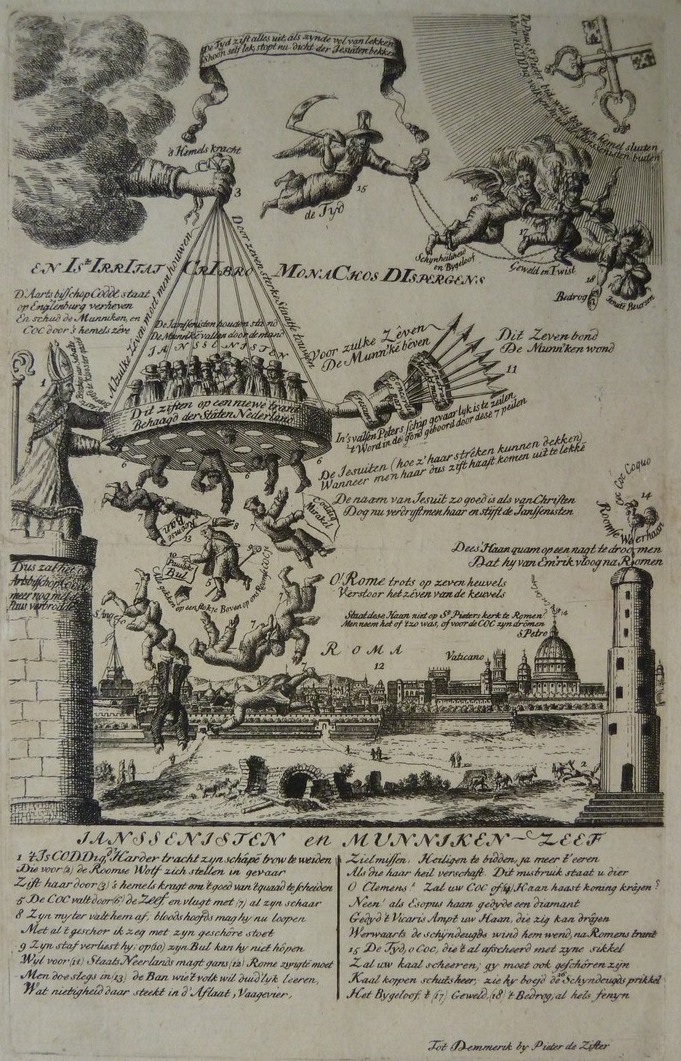 De Tyd zift alles uit, als zynde vol van lekken
Schoon self lek, stopt nu dicht der Jesuiten bekken
's Hemels kracht
3
15
de Tyd
16
17
18
Schynheiligh
en Bygeloof
Geweld en Twist
Bedrog
EN IsTe IRRITAT CRIBRO MONACHOS DISpERGENS
D'Aarts bisschop Codde staat
op Englenburg verheven
En schud de Munniken, en
COC door 's hemels zéve
De Janssenisten houden stand
De Munniken vallen door de mand
JANSSENISTEN
Voor zulke Zéven
De Munn'ke béven
Dit Zeven-bond
De Munn'ken wond
11
1
Dit ziften op een nieuwe trant
Behaagd der Staten Nederland
In's vallen Peters schip gevaarlyk is te zeilen
't Word in de grond geboord door dese 7 peilen
6
6
De Jesuiten (hoe z'haar stréken kunnen dekken)
Wanneer men haar dus zift haast komen uit te lekke
De naam van Jesuit zo goed is als van Christen
Dog nu verdryft men haar en styft de Janssenisten
De Coc Coquo
14
Roomse Weerhaan
Dees Haan quam op een nagt te droomen
Dat hy van Em'rik vloog na Roomen
Mirakel
13
10
Pauselyke
Bul
9
8
5
7
O Rome trots op zeven heuvels
Verstoor het zéven van de keuvels
Staat dese Haan niet op St. Pieters kerk te Romen?
Men neem het of 't zo was, of voor de COC zyn drómen
S. Petro
S. Angelo
ROMA
12
Vaticano
2
JANSSENISTEN en MUNNIKEN-ZEEF
1 't Is CODDig, d'Harder tracht zyn schápe trow te weiden
Die voor (2) de Roomse Wolf zich stellen in gevaar
Zift haar door (3) 's hemels kragt om 't goed van 't quaad te scheiden
5 De COC valt door (6) de Zeef, en vlugt met (7) al zyn schaar
8 Zyn myter valt hem af, bloods hoofds mag hy nu loopen
Met al 't geschor ik zeg met zyn geschóre stoet
9 Zyn staf verliest hy, op (10) zyn Bul kan hy niet hópen
Wyl voor (11) Staats Neerlands magt gans (12) Rome zwigte moet
Men doe slegs in (13) de Ban wie 't volk wil duidlyk leeren,
Wat nietigheid daar steekt in d'Aflaat, Vaagevier,
Zielmissen, Heiligen te bidden, ja meer t'eeren
Als die haar heil verschaft. Dit misbruik staat u dier
O Clemens! Zal uw COC of (14) Haan haast koning kráyen?
Neen! als Esopus haan gedyde een diamant
Gedyd 't Vicaris Ampt uw Haan, die zig kan dráyen
Werwaarts de schyndeugds wind hem wend, na Romens trant
15 De Tyd, o Coc, die 't al afscheerd met zyne sikkel
Zal uw kaal scheeren, gy moet ook geschóren zyn
Kaal koppen schuts heer, zie hy boeyd de (16) Schyndeugds prikkel
Het Bygeloof, 't (17) Geweld, (18) 't Bedrog, al hels fenyn
Tot Demmerik by Pieter de Zifter